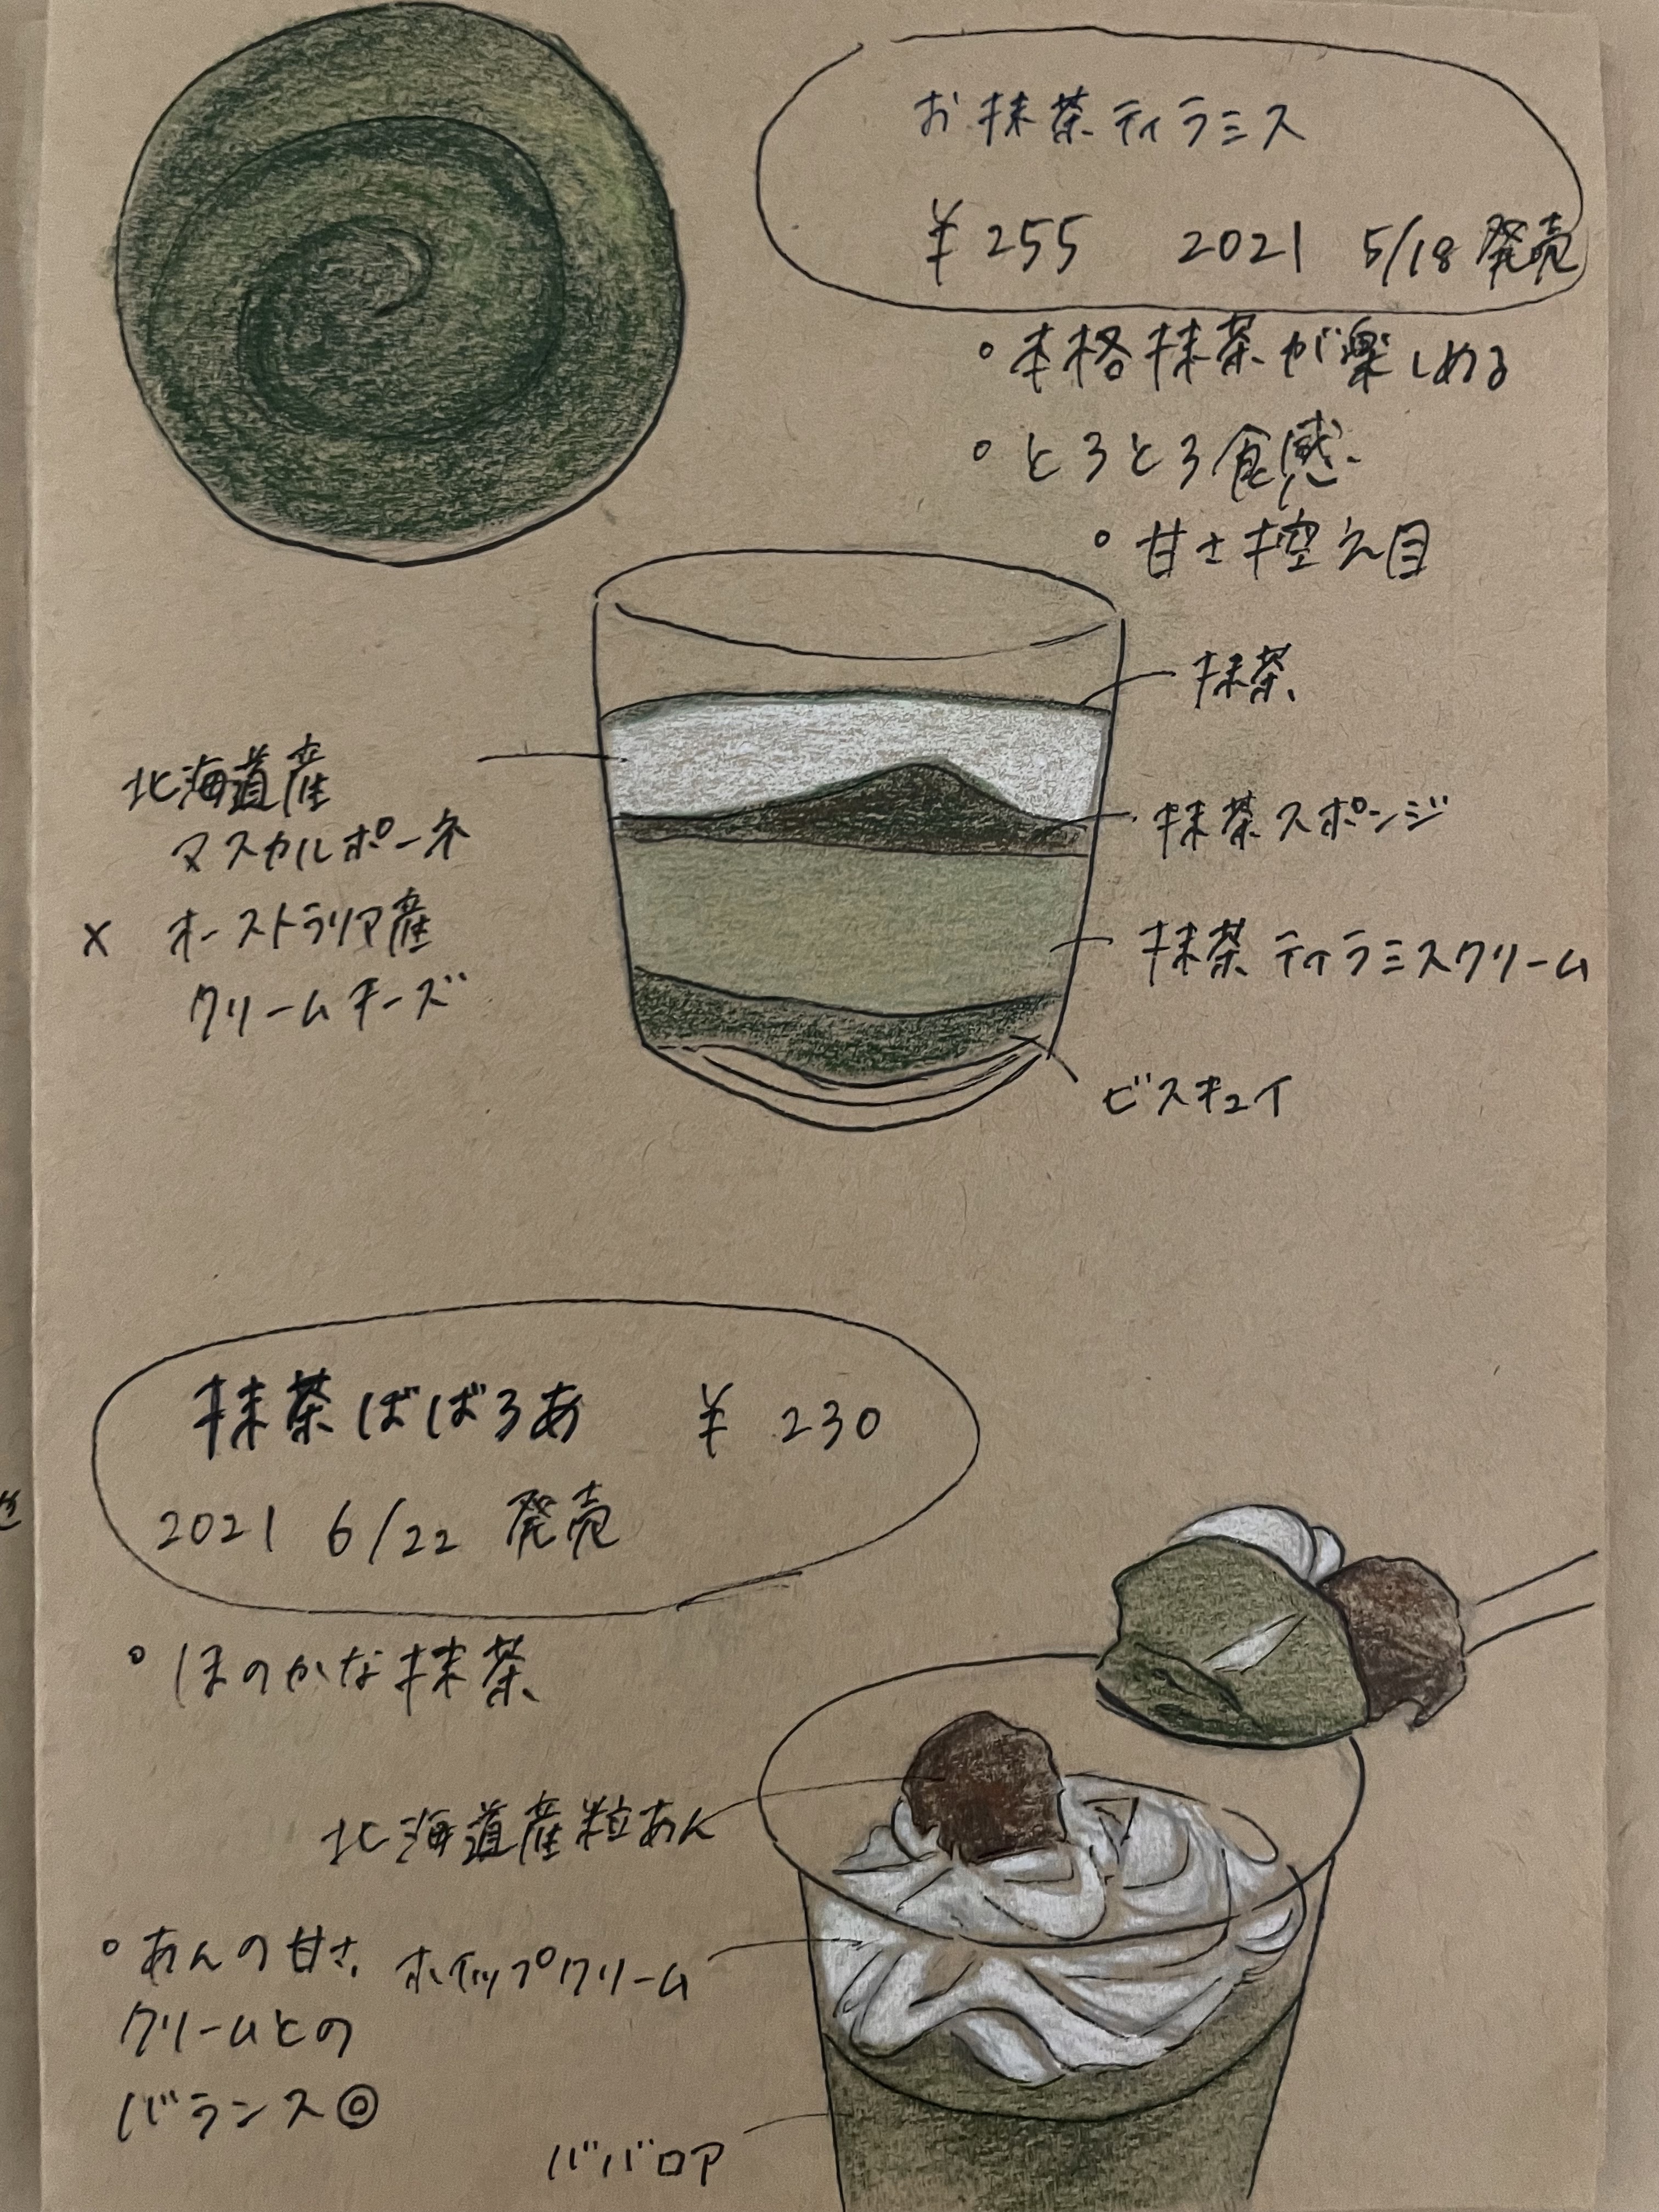 お抹茶ティラミス
¥255 2021 5/18 発売
°本格抹茶が楽しめる
°とろとろ食感
°甘さ控え目
抹茶
北海道産
マスカルポーネ
× オーストラリア産
クリームチーズ
抹茶スポンジ
抹茶ティラミスクリーム
ビスキュイ
抹茶ばばろあ ¥230
2021 6/22 発売
°ほのかな抹茶
北海道産粒あん
°あんの甘さ、
クリームとの
バランス◎
ホイップクリーム
ババロア